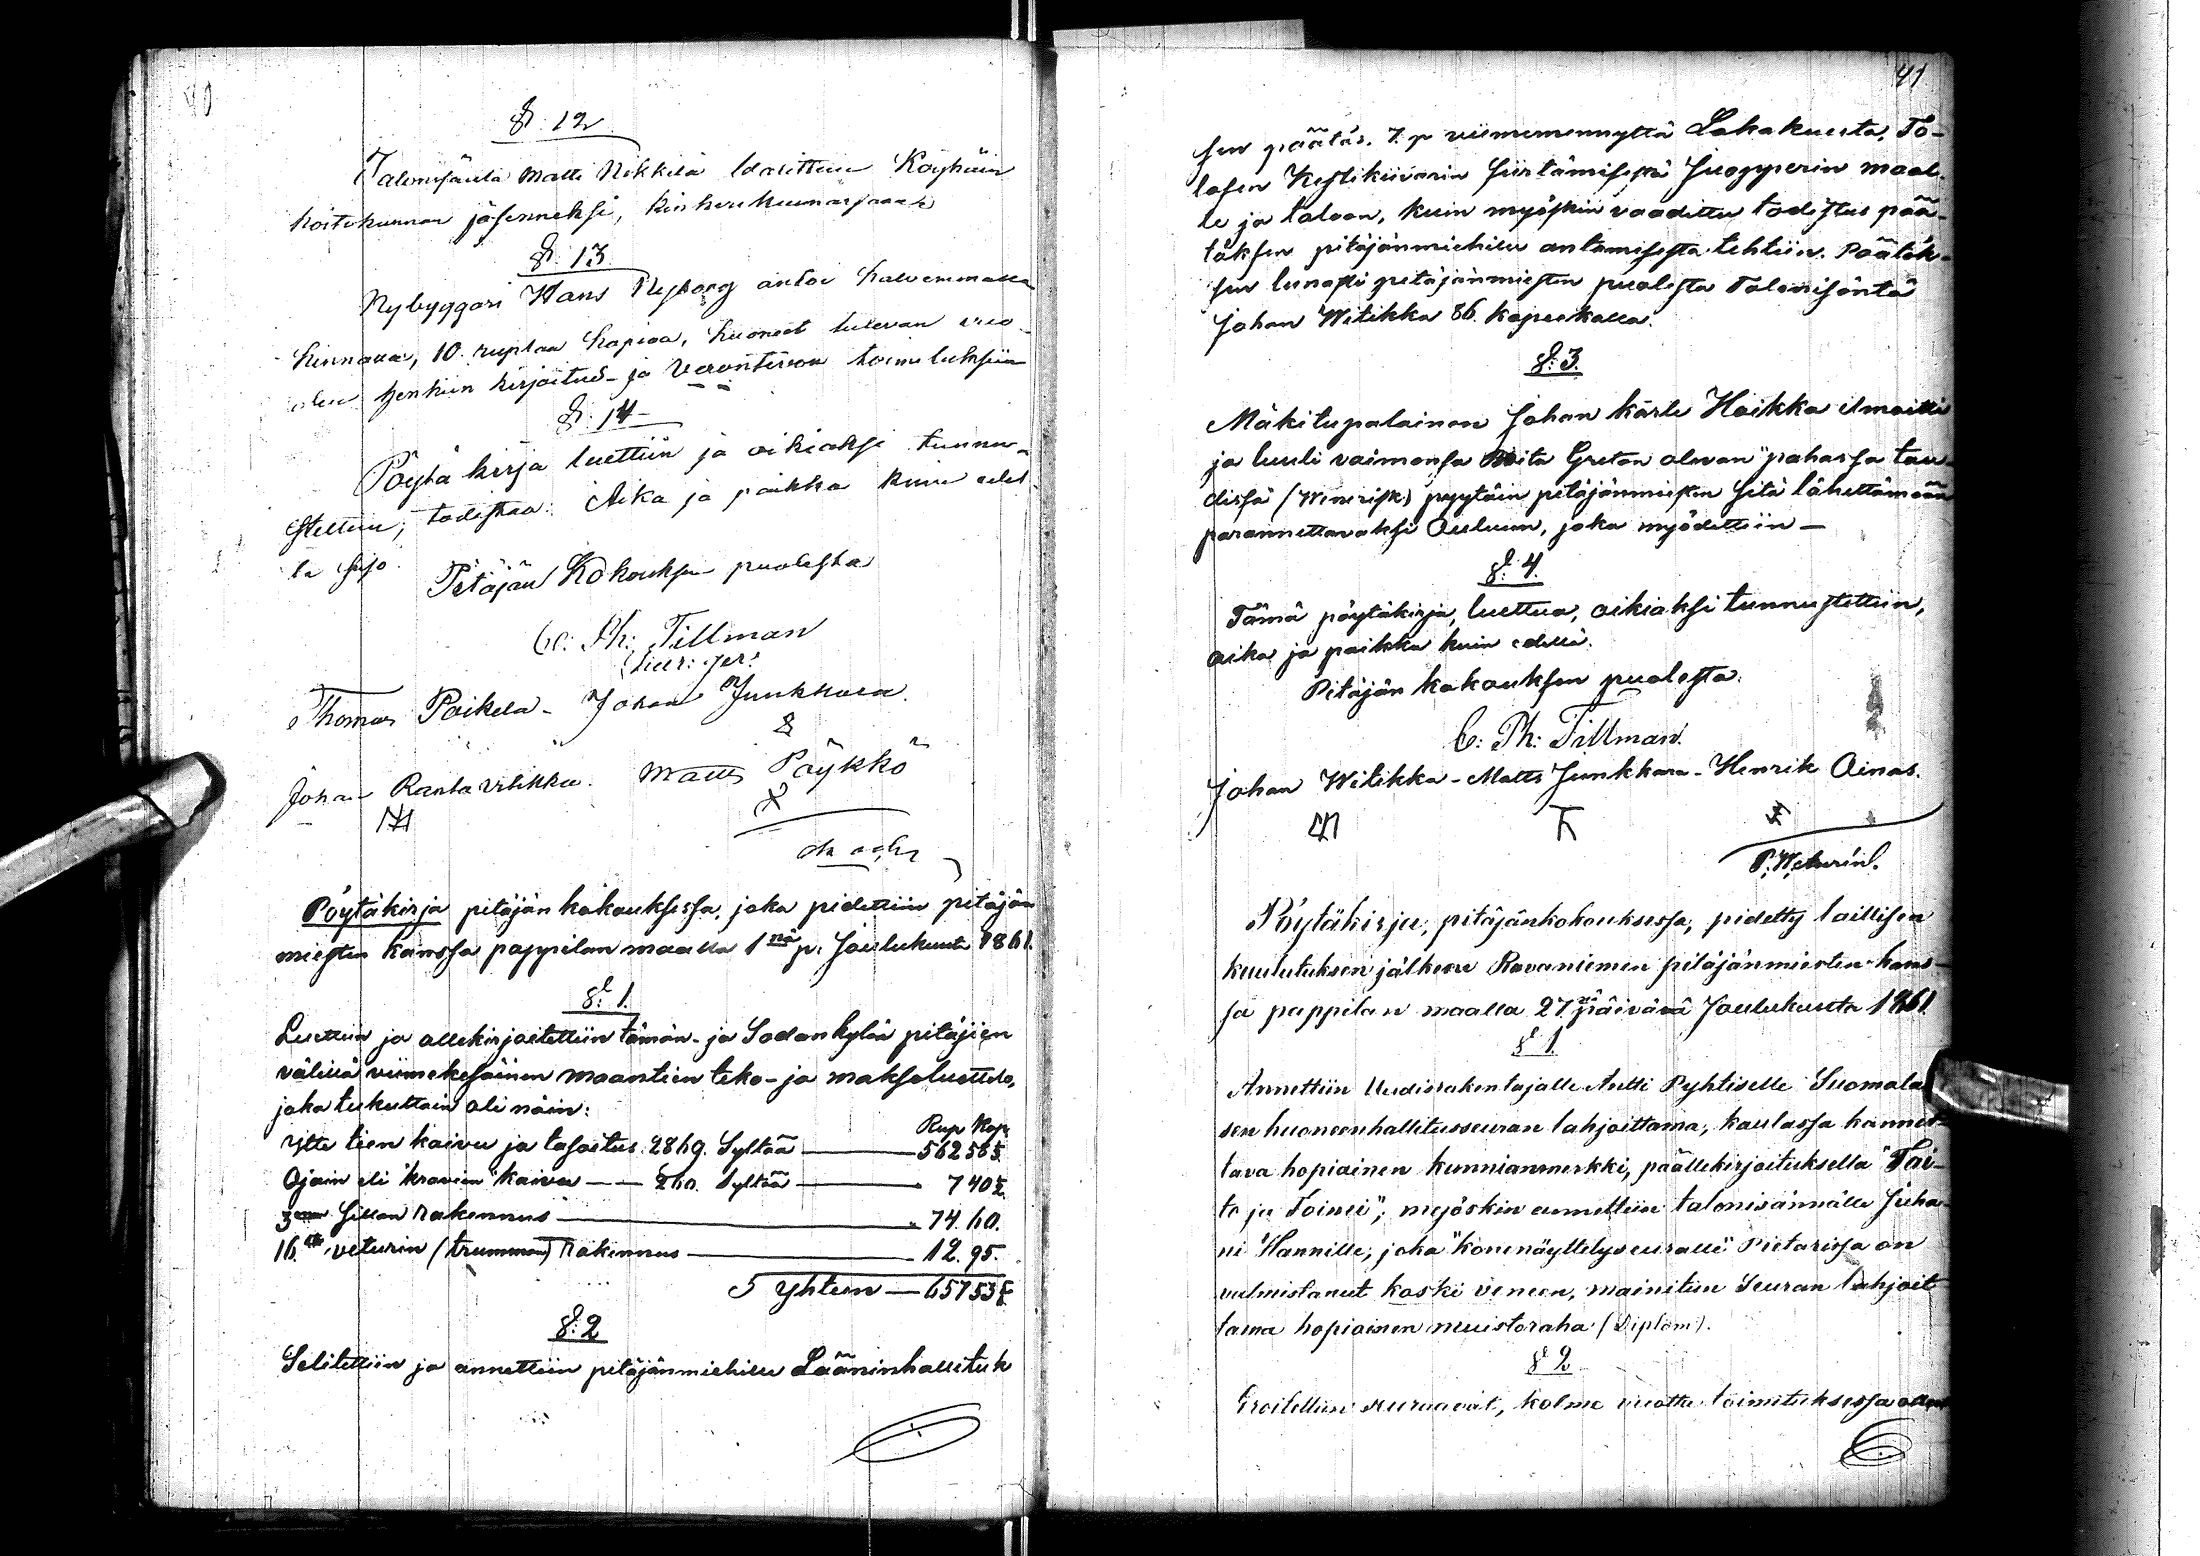 40
§. 12
Talonisäntä Matti Nikkilä Köyhäin
hoitokunnan jäsenneksi,
§. 13
Nybyggari Hans Nyborg antoi halvemmalla
hinnalla, 10. ruplaa hopiaa, huoneet tulevan vuo-
den henkiin kirjoitus- ja Verontevon toimituksiin
§. 14
Pöytä kirja luettiin ja oikiaksi tunnu-
stettiin, todistaa. Aika ja paikka kuin edel-
lä
Pitäjän Kokouksen puolesta
C: Ph: Tillman
Thomas Poikela - Johan Junkkara.
Johan Rantavitikka. Matts Pöykkö
Pöytäkirja pitäjän kokouksessa, joka pidettiin pitäjän
miesten kanssa pappilan maalla 1nä p: Joulukuuta 1861.
§: 1.
Luettiin ja allekirjoitettiin tämän- ja Sodankylän pitäjien
välillä viimekesäinen maantien teko- ja maksoluettelo,
joka lukuttain oli näin:
Rup Kop
itte tien kaivu ja tasoitus 2869. Syltää — 562 58½
Ojain eli "kravein" kaivu — 260. Syltää — 7 40½
3men Sillan rakennus — 74. 60.
16sta veturin (trumman) rakennus — 12. 95.
Yhteen — 657 53½
§: 2
Selitettiin ja annettiin pitäjänmiehille Lääninhallituk
41
sen päätös. 7. p viimemennyttä Lokakuusta, To-
lasen Kestikiivarin siirtämisestä Juopperin maal-
le ja taloon, kuin myöskin vaadittu todistus pää-
töksen pitäjänmiehille antamisesta tehtiin. Päätök-
sen lunasti pitäjänmiesten puolesta Talonisäntä
Johan Witikka 86. kopeekalla.
§: 3.
Mäkitupalainen Johan Kärle Hoikka ilmoitti
ja luuli vaimonsa Brita Gretan olevan "pahassa tau-
dissa (Wenerisk) pyytäin pitäjänmiesten sitä lähettämään
parannettavaksi Ouluun, joka myödettiin —
§: 4.
Tämä pöytäkirja, luettua, oikiaksi tunnustettiin,
aika ja paikka kuin edellä.
Pitäjän kokouksen puolesta.
C: Ph: Tillman.
Johan Witikka - Matts Junkkara - Henrik Ainas.
Pöytäkirja, pitäjänkokouksessa, pidetty laillisen
kuulutuksen jälkeen Rovaniemen pitäjänmiesten kans-
sa pappilan maalla 27nä päivänä Joulukuuta 1861
§ 1.
Annettiin Uudisrakentajalle Antti Pyhtiselle Suomalai
sen huoneenhallitusseuran lahjoittama, kaulassa kannet-
tava hopiainen kunnianmerkki, päällekirjoituksella "Tai-
to ja Toimi"; myöskin annettiin talonisännälle Juha-
ni Hannille, joka "konenäyttelyseuralle" Pietarissa on
valmistanut koski veneen, mainitun Seuran lahjoit
tama hopiainen muistoraha (Diplom).
§ 2
Eroitettiin seuraavat, kolme vuotta toimituksessa olleet